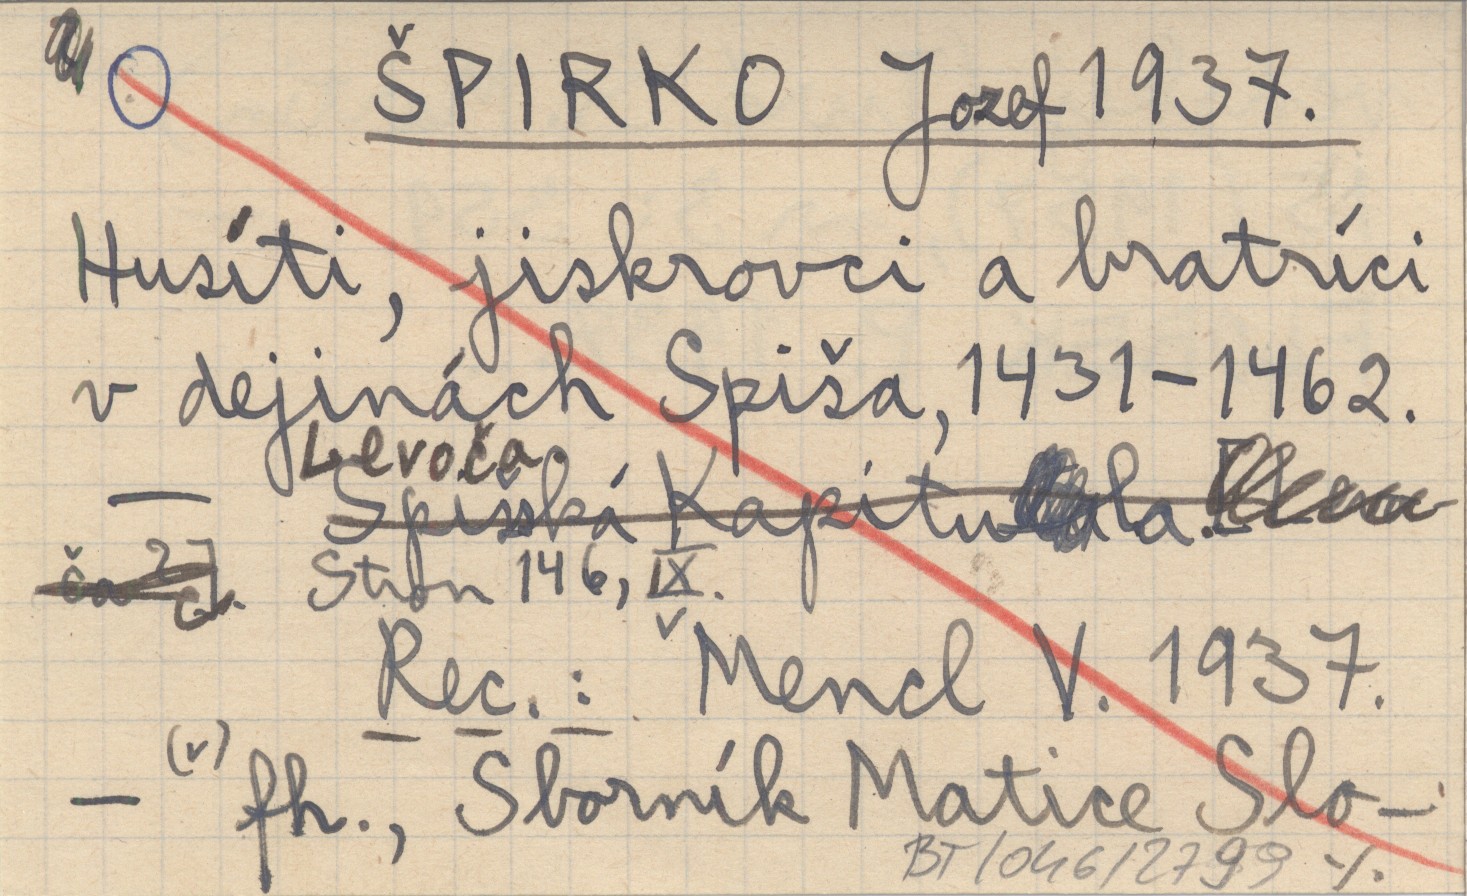 ŠPIRKO Jozef 1937.
Husíti, jiskrovci a bratríci
v dejinách Spiša, 1431-1462.
Levoča.
— Spišská Kapitula.
Stran 146, IX.
Rec.: ˇMencl V. 1937.
— (v) fh., Sborník Matice Slo-
BT/046/2799 ·/.